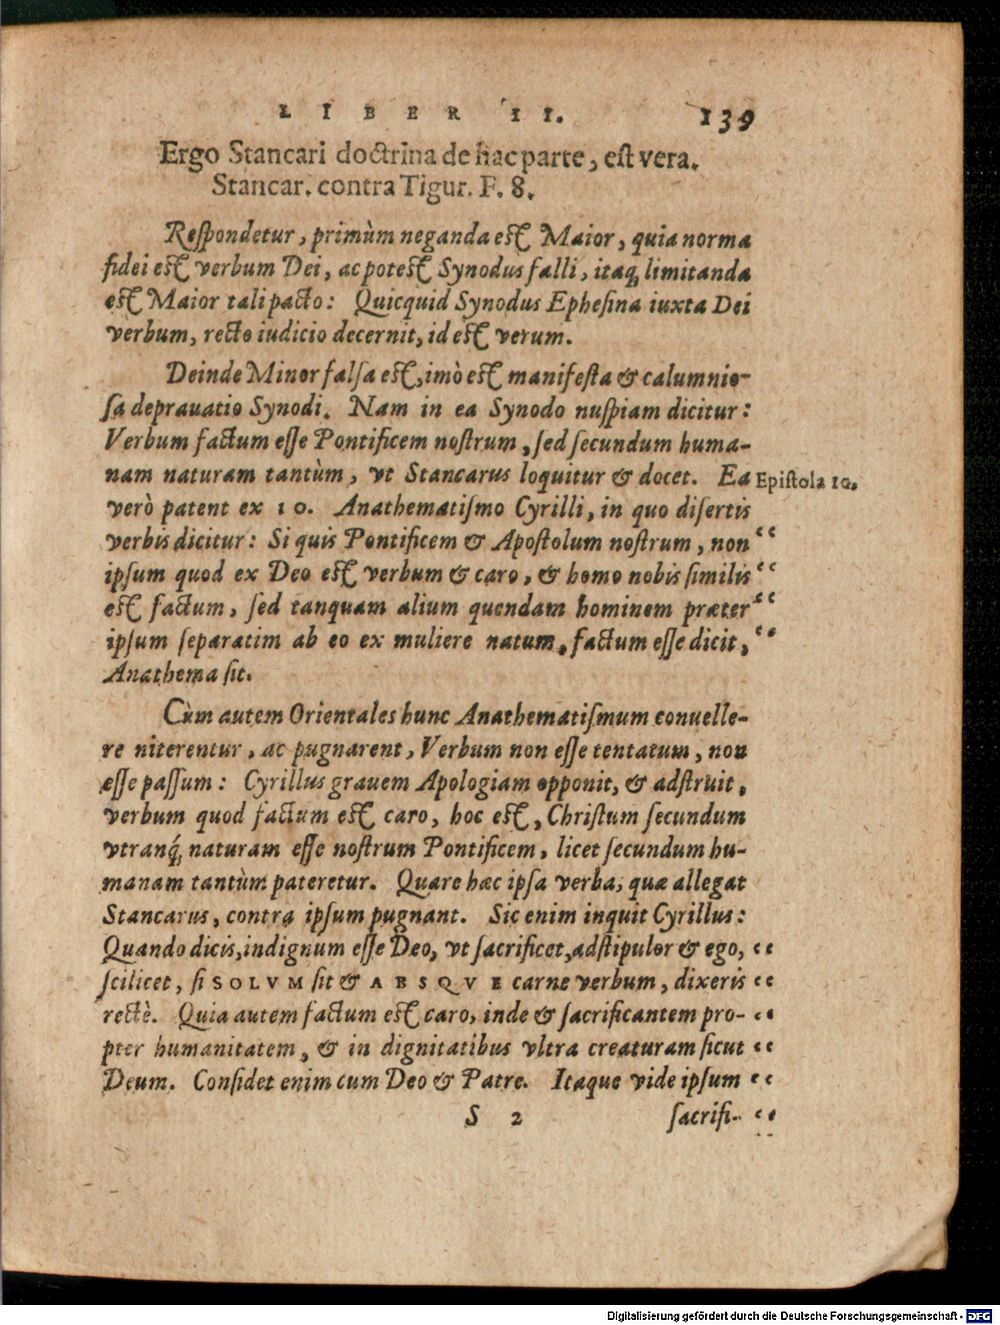 LIBER II. 139
Ergo Stancari doctrina de hac parte, est vera.
Stancar. contra Tigur. F. 8.
Respondetur, primùm neganda est Maior, quia norma
fidei est verbum Dei, ac potest Synodus falli, itaq́; limitanda
est Maior tali pacto: Quicquid Synodus Ephesina iuxta Dei
verbum, recto iudicio decernit, id est verum.
Deinde Minor falsa est, imò est manifesta & calumnio-
sa deprauatio Synodi. Nam in ea Synodo nuspiam dicitur:
Verbum factum esse Pontificem nostrum, sed secundum huma-
nam naturam tantùm, vt Stancarus loquitur & docet. Ea
Epistola 10.
verò patent ex 10. Anathematismo Cyrilli, in quo disertis
verbis dicitur: Si quis Pontificem & Apostolum nostrum, non “
ipsum quod ex Deo est verbum & caro, & homo nobis similis “
est factum, sed tanquam alium quendam hominem præter “
ipsum separatim ab eo ex muliere natum, factum esse dicit, “
Anathema sit.
Cùm autem Orientales hunc Anathematismum conuelle-
re niterentur, ac pugnarent, Verbum non esse tentatum, non
esse passum: Cyrillus grauem Apologiam opponit, & adstruit,
verbum quod factum est caro, hoc est, Christum secundum
vtranq́; naturam esse nostrum Pontificem, licet secundum hu-
manam tantùm pateretur. Quare hæc ipsa verba, quæ allegat
Stancarus, contra ipsum pugnant. Sic enim inquit Cyrillus:
Quando dicis, indignum esse Deo, vt sacrificet, adstipulor & ego, “
scilicet, si SOLVM sit & ABSQVE carne verbum, dixeris “
rectè. Quia autem factum est caro, inde & sacrificantem pro- “
pter humanitatem, & in dignitatibus vltra creaturam sicut “
Deum. Considet enim cum Deo & Patre. Itaque vide ipsum “
S 2 sacrifi- “
Digitalisierung gefördert durch die Deutsche Forschungsgemeinschaft - DFG